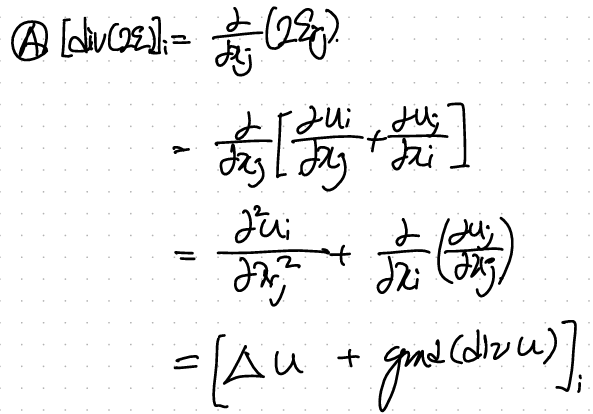 Ⓐ [div(2ε)]ᵢ = ∂/∂xⱼ (2εᵢⱼ)
= ∂/∂xⱼ [∂uᵢ/∂xⱼ + ∂uⱼ/∂xᵢ]
= ∂²uᵢ/∂xⱼ² + ∂/∂xᵢ (∂uⱼ/∂xⱼ)
= [Δu + grad(div u)]ᵢ